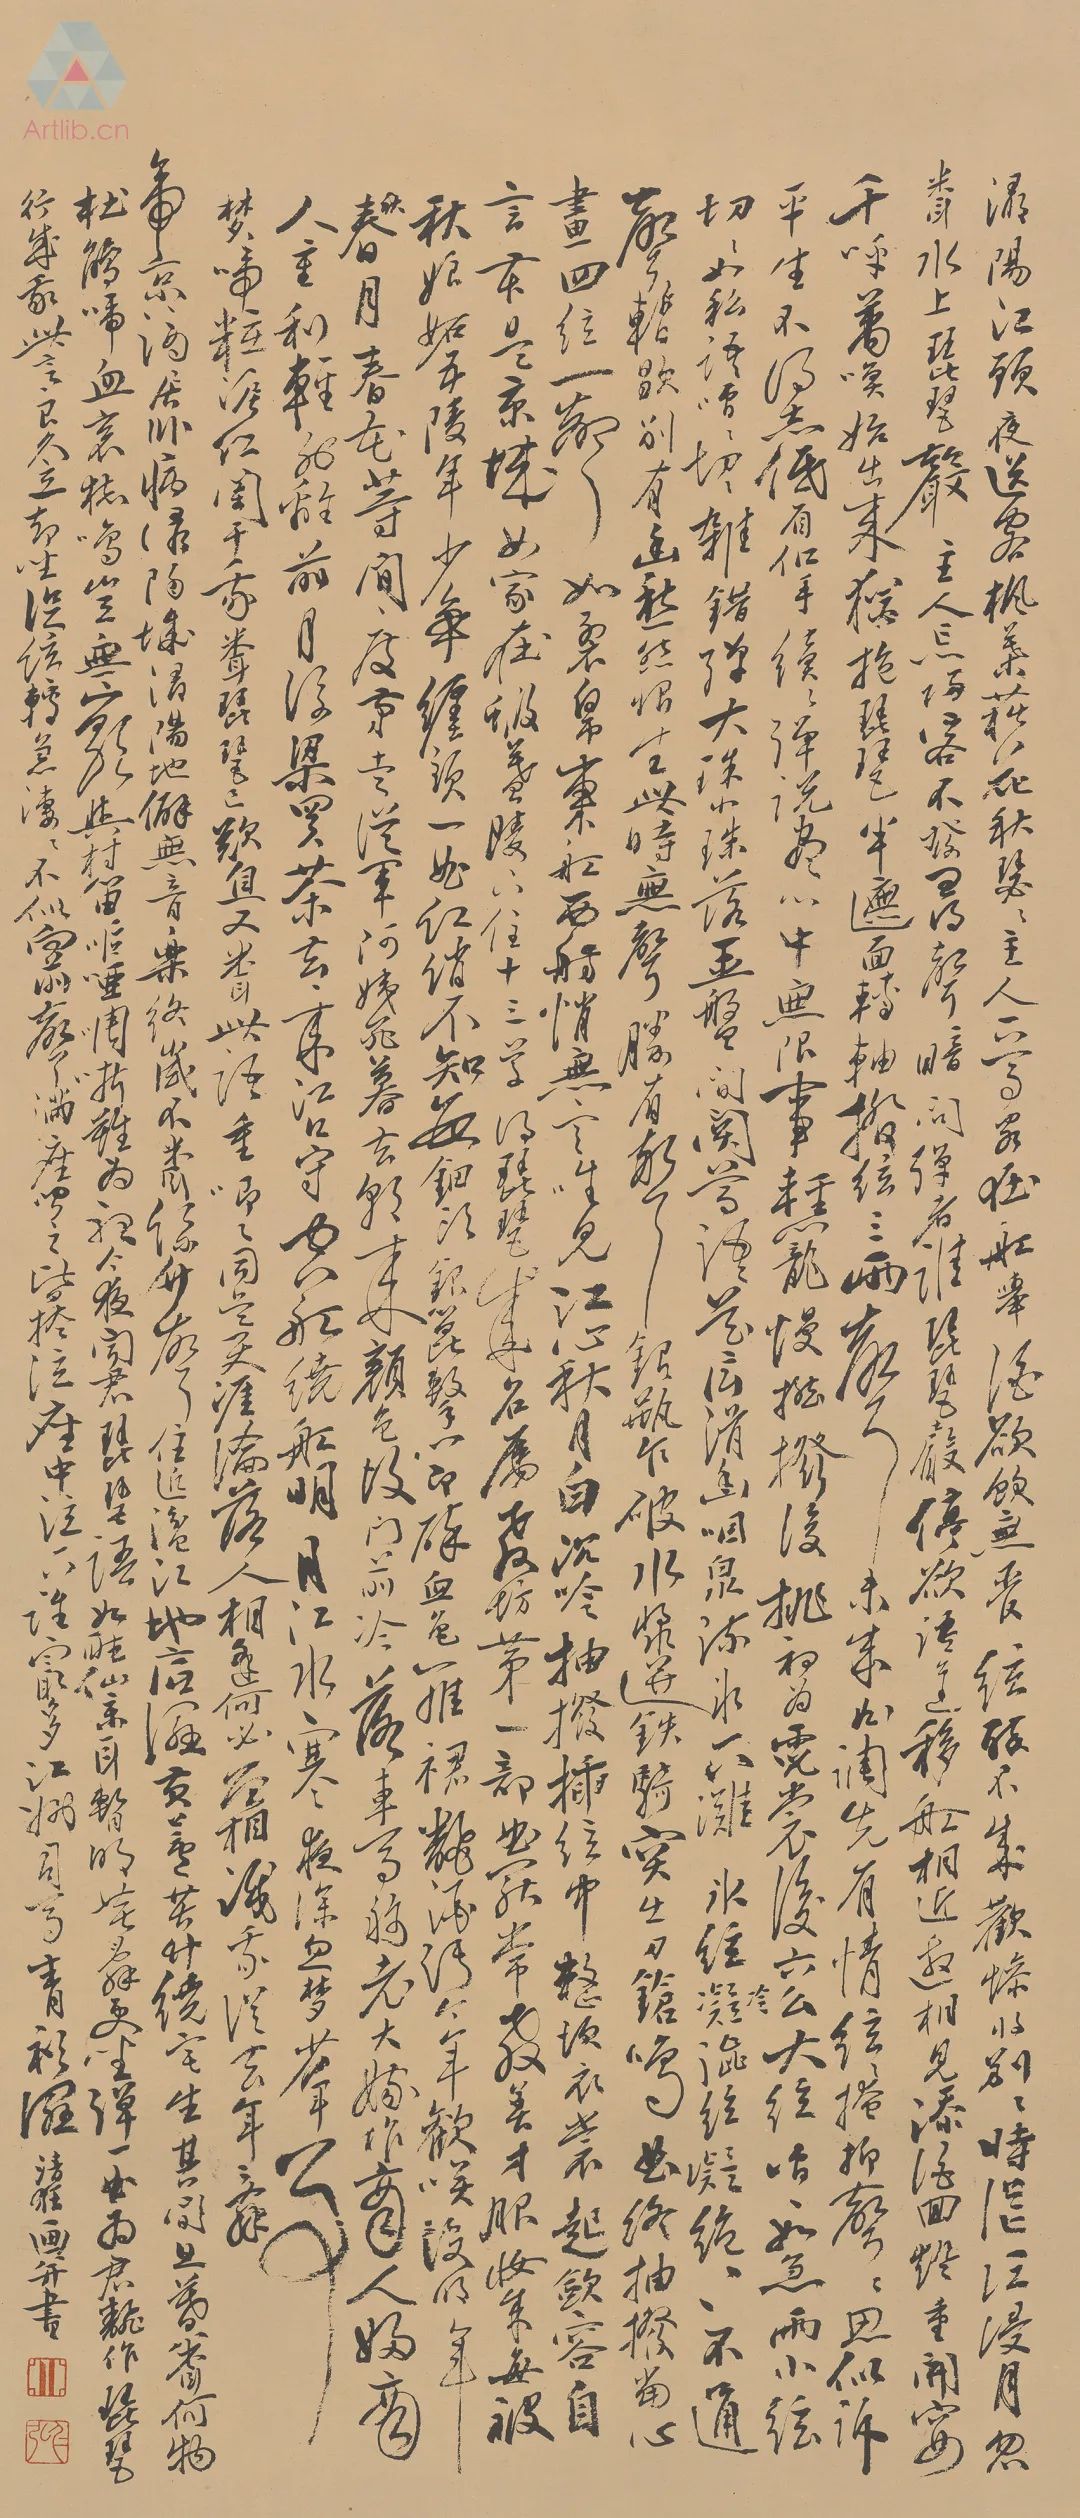 Artlib.cn
潯陽江頭夜送客楓葉荻花秋瑟〻主人下馬客在船舉酒欲飲無管絃醉不成歡慘將別〻時茫〻江浸月忽
聞水上琵琶聲主人忘歸客不發尋聲暗問彈者誰琵琶聲停欲語遲移船相近邀相見添酒回燈重開宴
千呼萬喚始出來猶抱琵琶半遮面轉軸撥絃三兩聲未成曲調先有情絃〻掩抑聲〻思似訴
平生不得志低眉信手續〻彈說盡心中無限事輕攏慢撚撥復挑初為霓裳後六么大絃嘈〻如急雨小絃
切〻如私語嘈〻切〻雜錯彈大珠小珠落玉盤間關鶯語花底滑幽咽泉流冰下灘冰絃冷凝澀絃凝絕〻不通
聲暫歇別有幽愁暗恨生此時無聲勝有聲銀瓶乍破水漿迸鐵騎突出刀鎗鳴曲終抽撥當心
畫四絃一聲如裂帛東船西舫悄無言唯見江心秋月白沉吟抽撥插絃中整頓衣裳起歛容自
言本是京城女家在蝦蟇陵下住十三學得琵琶成名屬教坊第一部曲罷常教善才服妝成每被
秋娘妬五陵年少爭纏頭一曲紅綃不知數鈿頭銀篦擊節碎血色羅裙翻酒污今年歡笑復明年
秋月春花等閒度弟走從軍阿姨死暮去朝來顏色故門前冷落車馬稀老大嫁作商人婦商
人重利輕別離前月浮梁買茶去〻來江口守空船繞船明月江水寒夜深忽夢少年事
夢啼粧淚紅闌干我聞琵琶已歎息又聞此語重唧〻同是天涯淪落人相逢何必曾相識我從去年辭
帝京謫居臥病潯陽城潯陽地僻無音樂終歲不聞絲竹聲住近湓江地底濕黃蘆苦竹繞宅生其間旦暮聞何物
杜鵑啼血哀猿鳴豈無山歌與村笛嘔啞啁哳難為聽今夜聞君琵琶語如聽仙樂耳暫明莫辭更坐彈一曲為君翻作琵琶
行感我此言良久立却坐促絃轉急淒〻不似向前聲滿座聞之皆掩泣座中泣下誰最多江州司馬青衫濕 畫并書